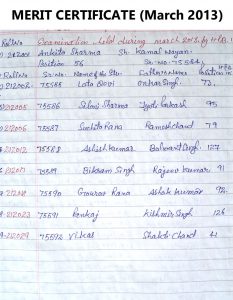 MERIT CERTIFICATE (March 2013)
Roll No Examination held during march 2013 by H.P.B.
212001 Ankita Sharma Sh. Kamal Nayan
Position 56 Sr. No. 75584
Roll No. Sr. No. Name of the Stu Father's Name Position in
212002 75585 Lata Devi Onkar Singh 73
212005 75586 Silmi Sharma Jyoti Parkash 95
212006 75587 Sunkita Rana Ramesh Chand 79
212012 75588 Ashish Kumar Balwant Singh 127
212021 75589 Bikram Singh Rajeev Kumar 91
75590 Gourav Rana Ashok Kumar 92
212023 75591 Pankaj Kishmir Singh 126
212029 75592 Vikas Chand 41